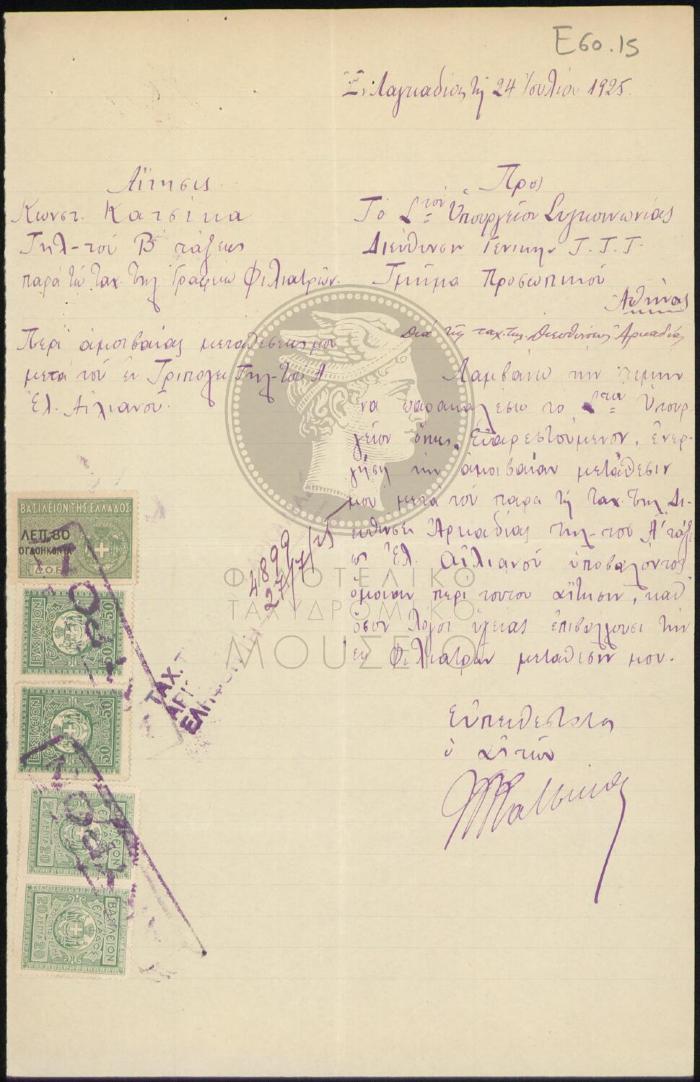 Ε60.15
Ἐν Λαγκαδίοις τῇ 24 Ἰουλίου 1925
Αἴτησις
Κωνστ. Κατσίκα
Τηλ-τοῦ Β τάξεως
παρὰ τῷ Ταχ. Τηλ. Γραφείῳ Φιλιατρῶν.
Περὶ ἀμοιβαίας μεταθέσεώς μου
μετὰ τοῦ ἐν Τριπόλει Τηλ-τοῦ Α
Ἐλ. Αἰλιανοῦ.
Πρὸς
Τὸ Σ τὸν Ὑπουργεῖον Συγκοινωνίας
Διεύθυνσιν Γενικὴν Τ.Τ.Τ.
Τμῆμα Προσωπικοῦ
Ἀθήνας
Διὰ τῆς ταχ. τηλ. Διευθύνσεως Ἀρκαδίας
Λαμβάνω τὴν τιμὴν
νὰ παρακαλέσω τὸ Ὑπουρ
γεῖον ὅπως, εὐαρεστούμενον, ἐνερ
γήσῃ τὴν ἀμοιβαίαν μετάθεσιν
μου μετὰ τοῦ παρὰ τῇ ταχ. τηλ. Δι
ευθύνσει Ἀρκαδίας τηλ-τοῦ Α τάξε
ως Ἐλ. Αἰλιανοῦ ὑποβαλόντος
ὁμοίαν περὶ τούτου αἴτησιν, καθ'
ὅσον λόγοι ὑγείας ἐπιβάλλουσι τὴν
ἐκ Φιλιατρῶν μετάθεσίν μου.
Εὐπειθέστατος
ὁ αἰτῶν
Κατσίκας
4899
27/7/25
ΒΑΣΙΛΕΙΟΝ ΤΗΣ ΕΛΛΑΔΟΣ
ΛΕΠ. 80
ΟΓΔΟΗΚΟΝΤΑ
50 50
50 50
20 20
ΒΑΣΙΛΕΙΟΝ
ΕΛΛΑΔΟΣ
20 20
ΤΑΧ. Τ
ΦΙΛΟΤΕΛΙΚΟ
ΤΑΧΥΔΡΟΜΙΚΟ
ΜΟΥΣΕΙΟ